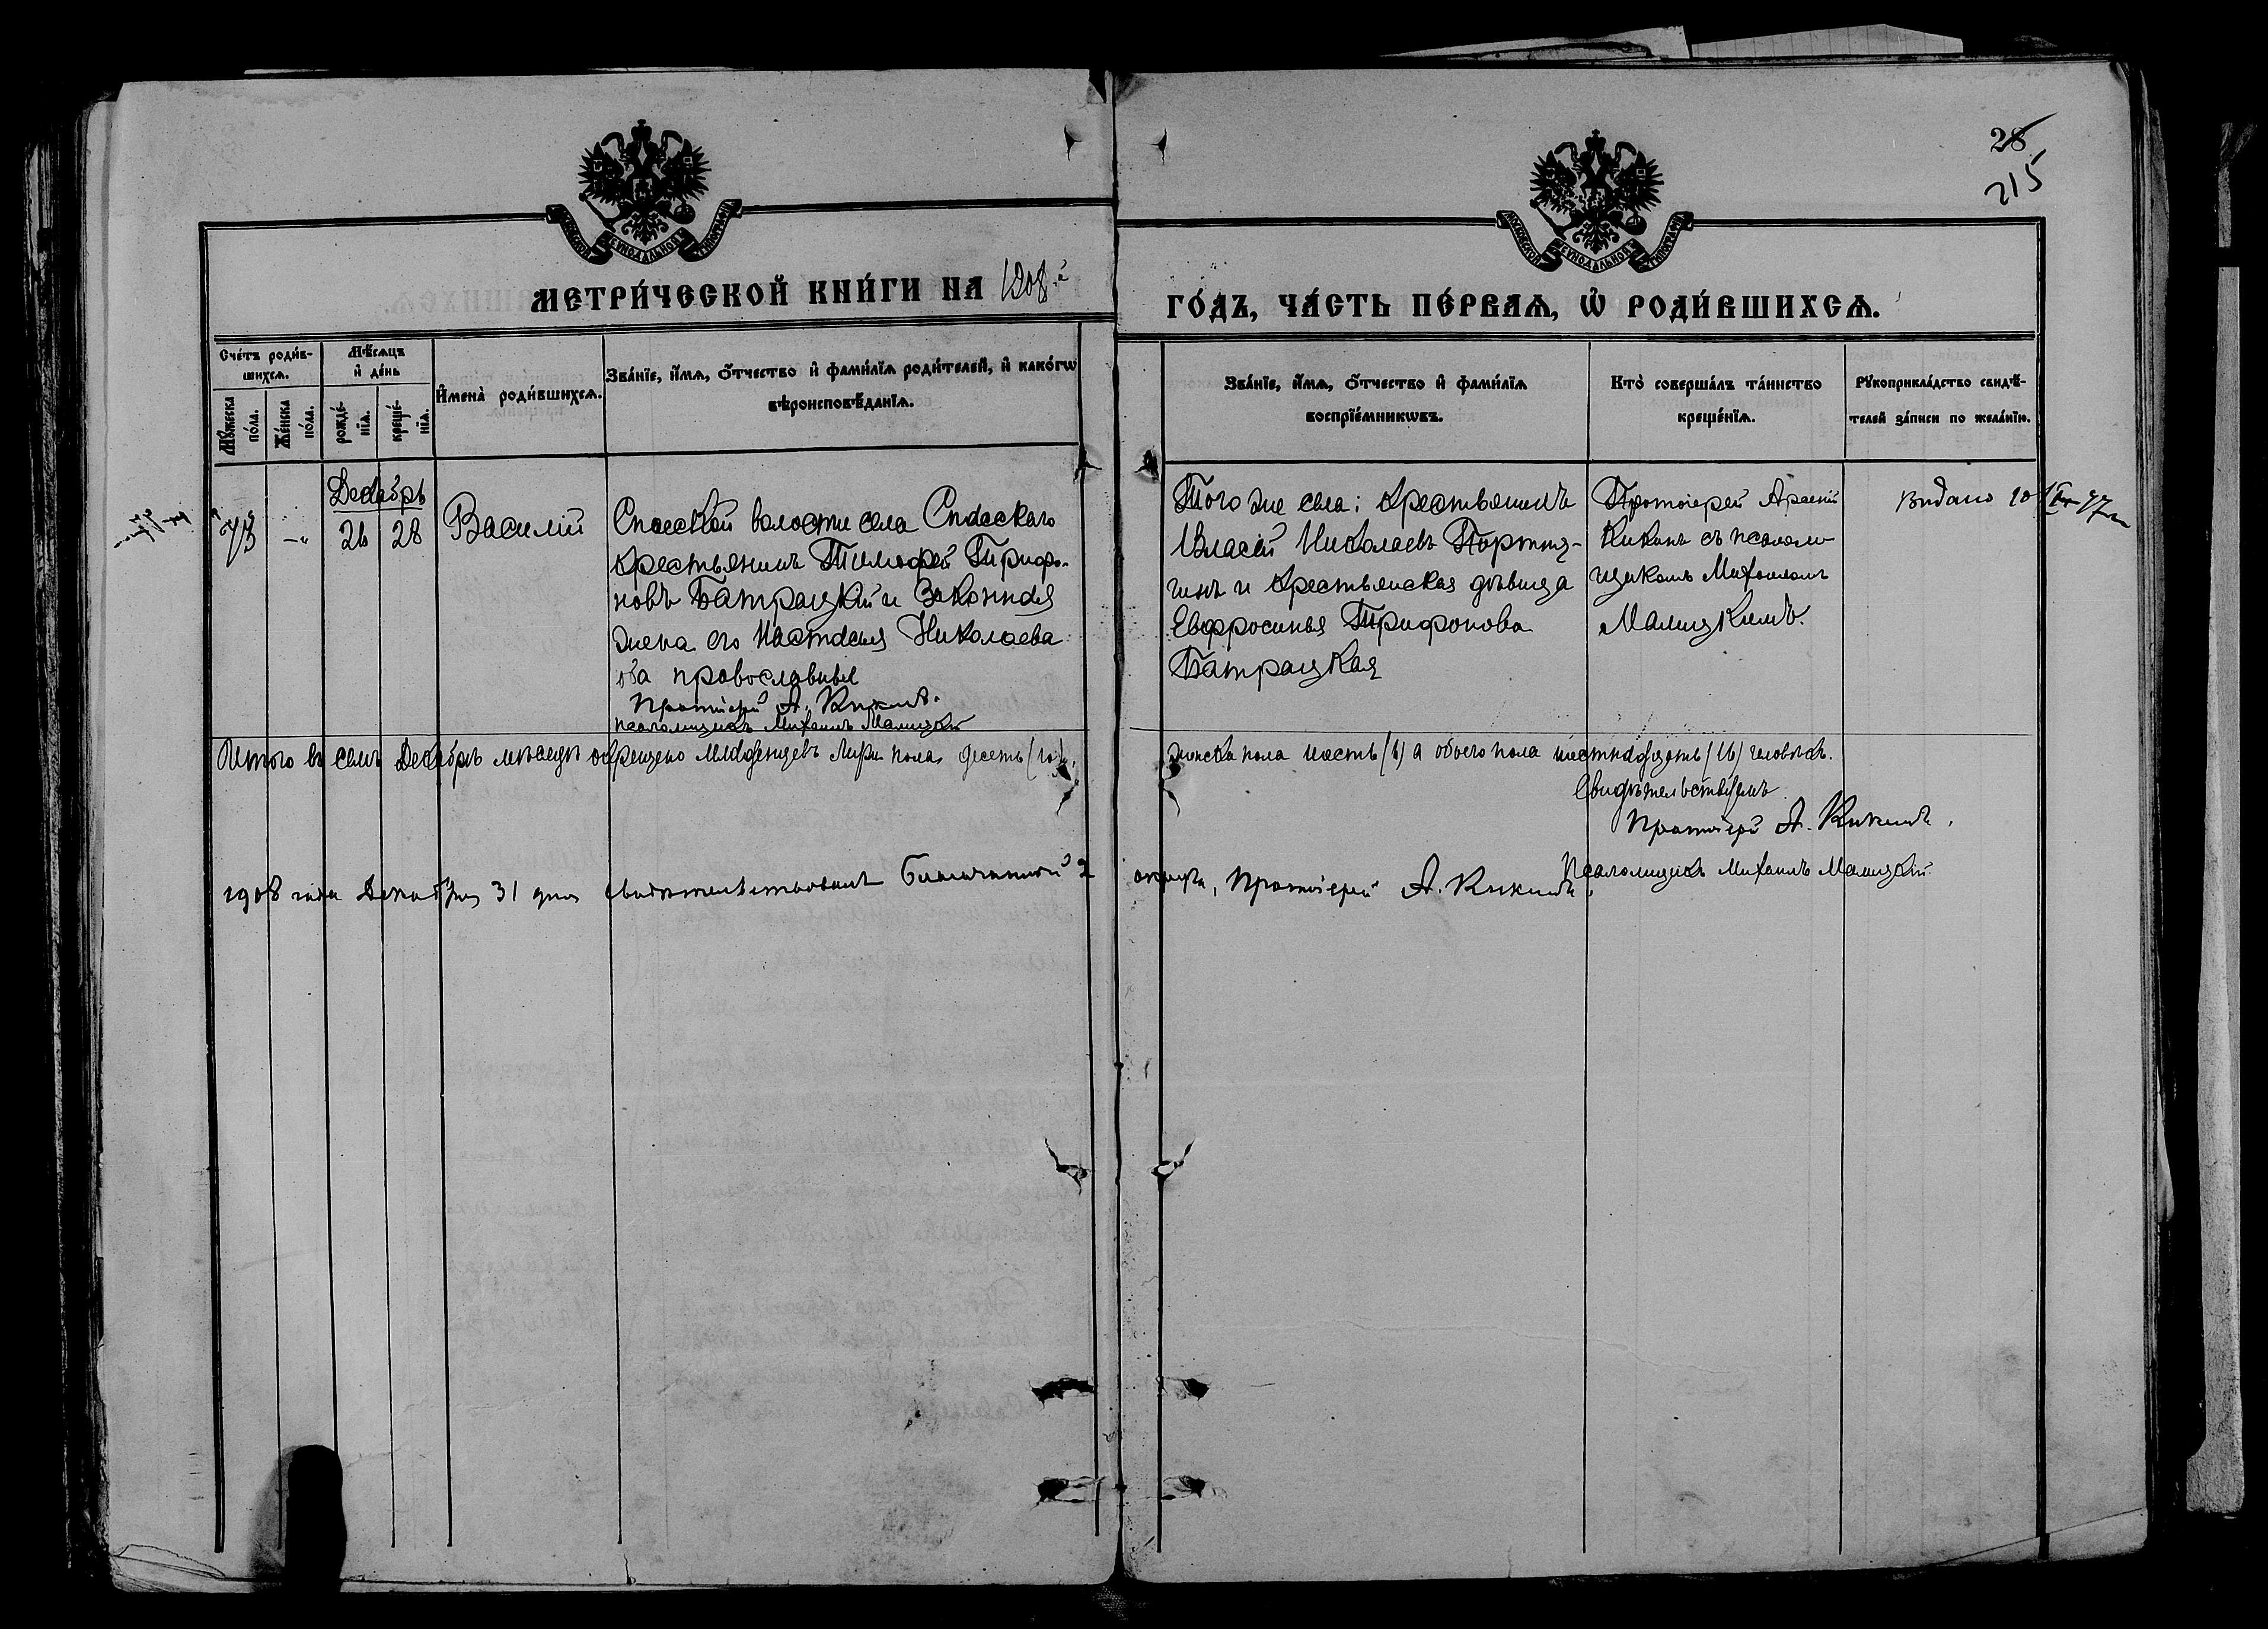 28
215
МОСКОВСКОЙ СѴНОДАЛЬНОЙ ТИПОГРАФІИ
МОСКОВСКОЙ СѴНОДАЛЬНОЙ ТИПОГРАФІИ
МЕТРИ́ЧЕСКОЙ КНИ́ГИ НА 1908й
ГО́ДЪ, ЧА́СТЬ ПЕ́РВАѦ, Ѽ РОДИ́ВШИХСѦ.
Сче́тъ роди́в-
шихсѧ.
Мꙋжеска по́ла.
Же́нска по́ла.
Мѣ́сѧцъ
и҆ де́нь
рожде́-
нїѧ.
креще́-
нїѧ.
И҆мена̀ роди́вшихсѧ.
Зва́нїе, и҆́мѧ, ѻ҆́тчество и҆ фами́лїѧ роди́телей, и҆ како́гѡ
вѣроисповѣ́данїѧ.
Зва́нїе, и҆́мѧ, ѻ҆́тчество и҆ фами́лїѧ
воспрїе́мникѡвъ.
Кто̀ соверша́лъ та́инство
креще́нїѧ.
Рꙋкоприкла́дство свидѣ́-
телей за́писи по жела́нїю.
Декабрь
73 –„ 26 28 Василій
Спасской волости села Спасскаго
крестьянинъ Тимофей Трифо-
новъ Батрацкій и законная
жена его Настасья Николаева
оба православные
Протоіерей А. Кикинъ.
псаломщикъ Михаилъ Малицкій
Того же села: крестьянинъ
Власій Николаевъ
и крестьянская дѣвица
Евфросинья Трифонова
Батрацкая
Протоіерей
Кикинъ съ псалом-
щикомъ Михаиломъ
Малицкимъ.
Видано 10
Итого въ семъ Декабрѣ мѣсяцѣ окрещено младенцевъ муж. пола десять (10),
женска пола шесть (6) а обоего пола шестнадцать (16) человѣкъ.
Свидѣтельствуемъ
Протоіерей А. Кикинъ.
Псаломщикъ Михаилъ Малицкій
1908 года Декабря 31 дня свидѣтельствовалъ Благочинный 2
округа, Протоіерей А. Кикинъ.